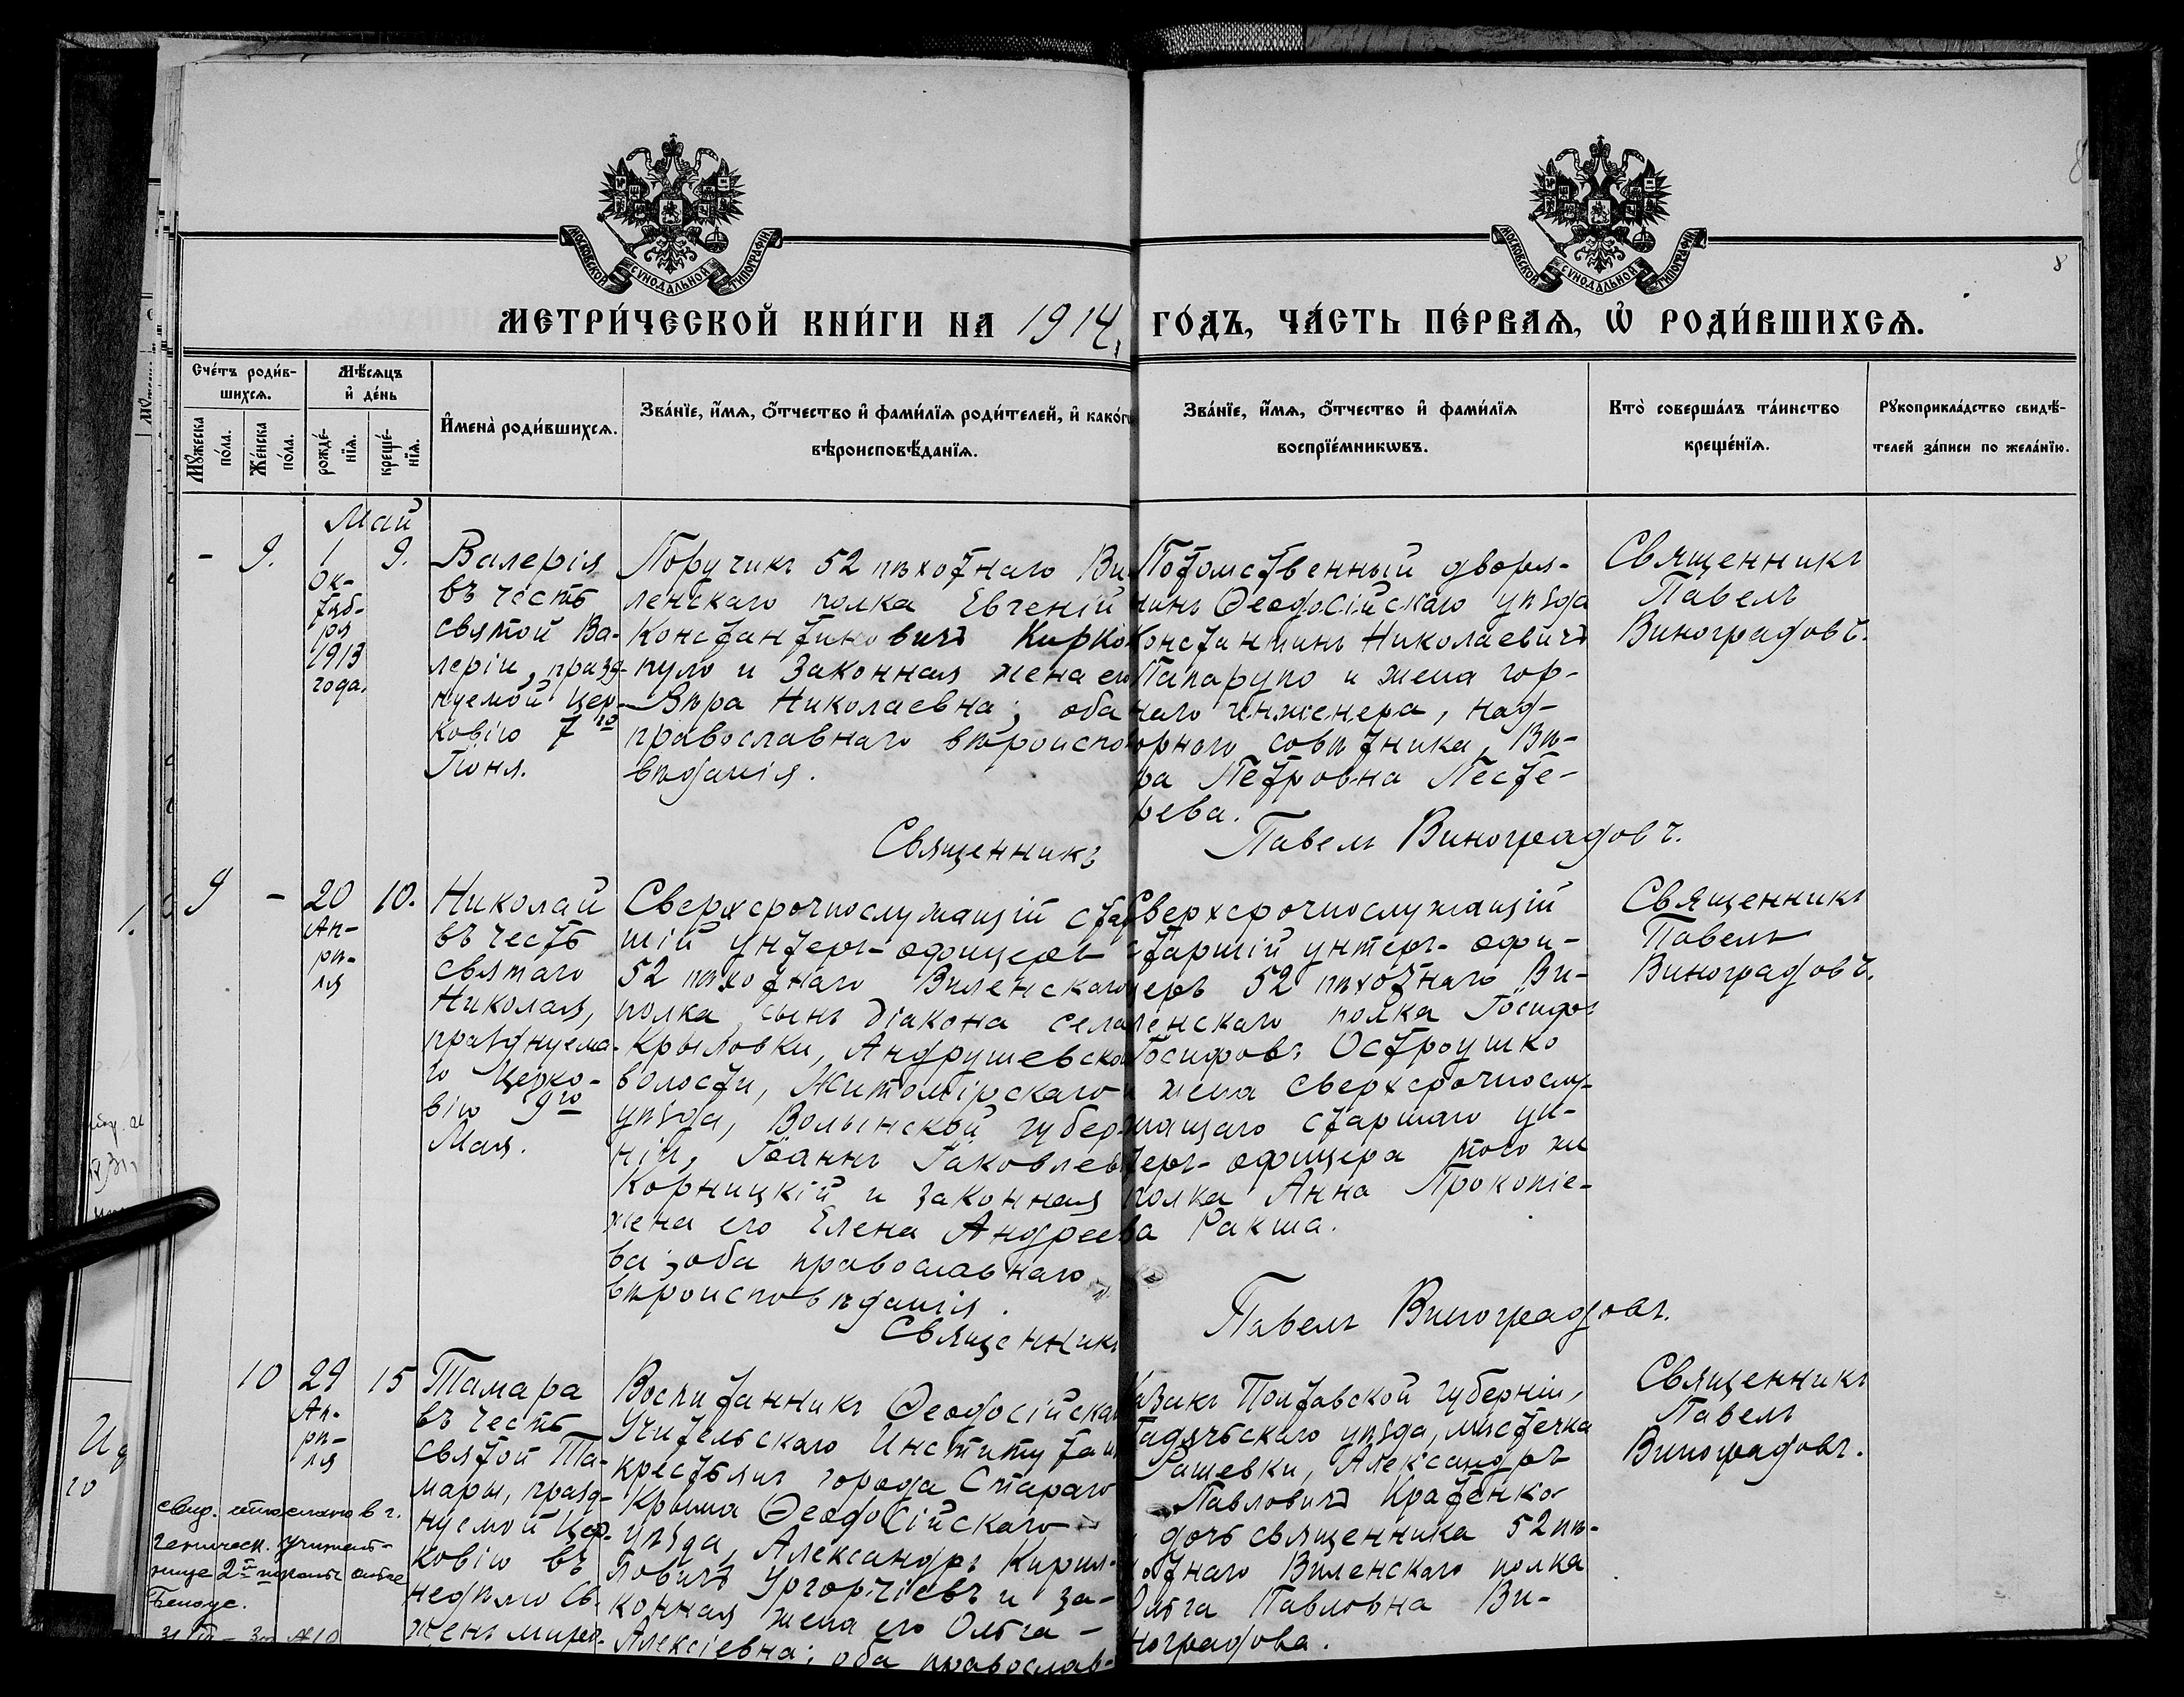 8
МОСКОВСКОЙ СѴНОДАЛЬНОЙ ТИПОГРАФІИ
МОСКОВСКОЙ СѴНОДАЛЬНОЙ ТИПОГРАФІИ
8
МЕТРИ́ЧЕСКОЙ КНИ́ГИ НА 1914,
ГО́ДЪ, ЧА́СТЬ ПЕ́РВАѦ, Ѡ҆ РОДИ́ВШИХСѦ.
Сче́тъ роди́в-
шихсѧ.
Мꙋ́жеска
по́ла.
Же́нска
по́ла.
Мѣ́сѧцъ
и҆ де́нь
рожде́-
нїѧ.
креще́-
нїѧ.
И҆мена̀ роди́вшихсѧ.
Зва́нїе, и҆́мѧ, ѻ҆́тчество и҆ фами́лїѧ роди́телей, и҆ како́гѡ
вѣроисповѣ́данїѧ.
Зва́нїе, и҆́мѧ, ѻ҆́тчество и҆ фами́лїѧ
воспрїе́мникѡвъ.
Кто̀ соверша́лъ та́инство
креще́нїѧ.
Рꙋкоприкла́дство свидѣ́-
телей за́писи по жела́нїю.
Май
- 9. 1 9.
Ок-
тяб-
ря
1913
года.
Валерія
въ честь
святой Ва-
леріи, празд-
нуемой Цер-
ковію 7го
Іюня.
Поручикъ 52 пѣхотнаго Ви-
ленскаго полка Евгеній
Константиновичъ Кирко
пуло и законная жена его
Вѣра Николаевна; оба
православнаго вѣроиспо-
вѣданія.
Потомственный дворя-
нинъ Ѳеодосійскаго уѣзда
Константинъ Николаевичъ
Папаруπο и жена гор-
наго инженера, над-
ворнаго совѣтника, Вѣ-
ра Петровна Песте-
рева.
Священникъ
Павелъ
Виноградовъ.
Священникъ Павелъ Виноградовъ.
9 - 20 10.
Ап-
рѣ-
ля
Николай
въ честь
святаго
Николая,
празднуема-
го Церко-
вію 9го
Мая.
Сверхсрочнослужащій стар
шій унтеръ-офицеръ
52 пѣхотнаго Виленскаго
полка, сынъ діакона села
Крыловки, Андрушевской
волости, Житомірскаго
уѣзда, Волынской губер-
ніи, Іоаннъ Іаковлевъ
Корницкій и законная
жена его Елена Андреев
ва; оба православнаго
вѣроисповѣданія.
Сверхсрочнослужащій
старшій унтеръ-офи-
церъ 52 пѣхотнаго Ви-
ленскаго полка Іосифъ
Іосифовъ Остроушко
и жена сверхсрочнослу-
жащаго старшаго ун-
теръ-офицера того же
полка Анна Прокопіе-
ва Ракша.
Священникъ
Павелъ
Виноградовъ.
Священникъ Павелъ Виноградовъ.
10 29 15
Ап-
рѣ-
ля
Тамара
въ честь
святой Та-
мары, празд-
нуемой Цер-
ковію въ
недѣлю Св.
женъ мѵро-
Воспитанникъ Ѳеодосійскаго
Учительскаго Института
крестьянъ города Стараго
Крыма Ѳеодосійскаго
уѣзда, Александръ Кирил-
ловичъ и за-
конная жена его Ольга
Алексіевна; оба православ-
Казакъ Полтавской губерніи,
Гадячьскаго уѣзда, мѣстечка
Рашевки, Александръ
Павловичъ Кратенко
дочь священника 52 пѣ-
хотнаго Виленскаго полка
Ольга Павловна Ви-
ноградова.
Священникъ
Павелъ
Виноградовъ.
свид. в г.